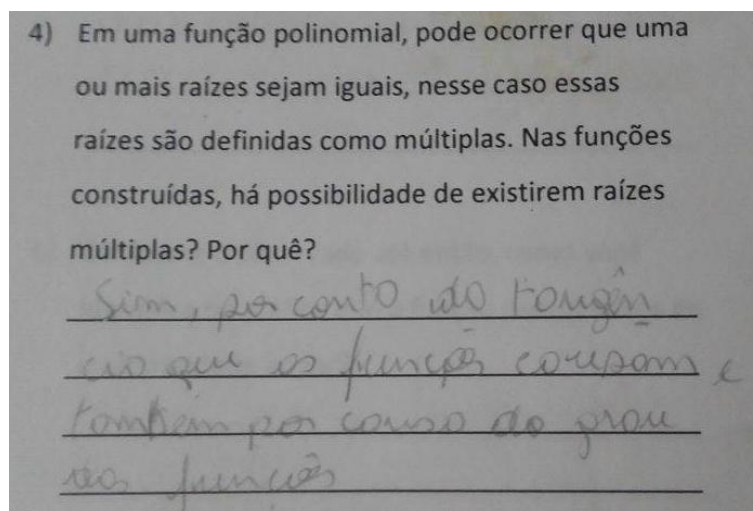 4) Em uma função polinomial, pode ocorrer que uma
ou mais raízes sejam iguais, nesse caso essas
raízes são definidas como múltiplas. Nas funções
construídas, há possibilidade de existirem raízes
múltiplas? Por quê?
Sim, por conta da tangên
cia que as funções causam e
também por causa do grau
das funções